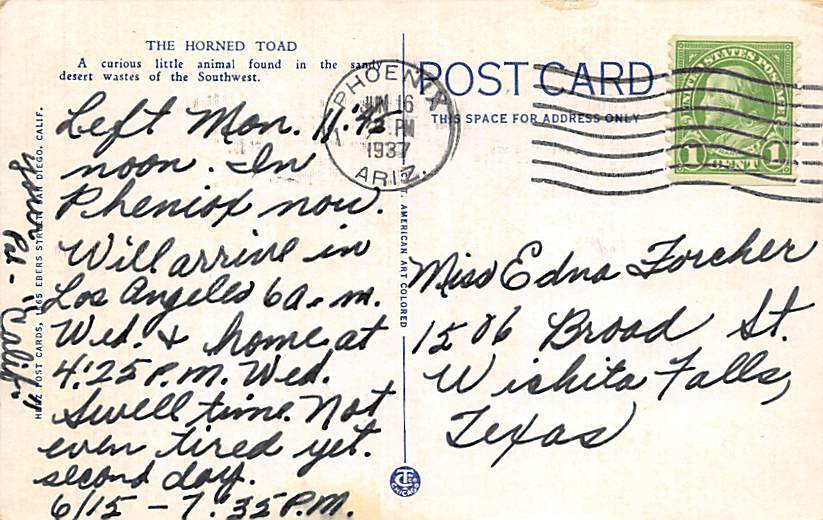 THE HORNED TOAD
A curious little animal found in the sandy
desert wastes of the Southwest.
Left Mon. 11:45
noon. In
Pheniox now.
Will arrive in
Los Angeles 6 a.m.
Wed. & home at
4:25 P.M. Wed.
Swell time. Not
even tired yet.
second day.
6/15 - 7:35 P.M.
Your
Pal -
"Calif"
POST CARD
THIS SPACE FOR ADDRESS ONLY
PHOENIX
JUN 16
PM
1937
ARIZ.
UNITED STATES POSTAGE
1 CENT 1
Miss Edna Forcher
1506 Broad St.
Wichita Falls,
Texas
POST CARDS, EBERS STREET, SAN DIEGO, CALIF.
AMERICAN ART COLORED
CHICAGO